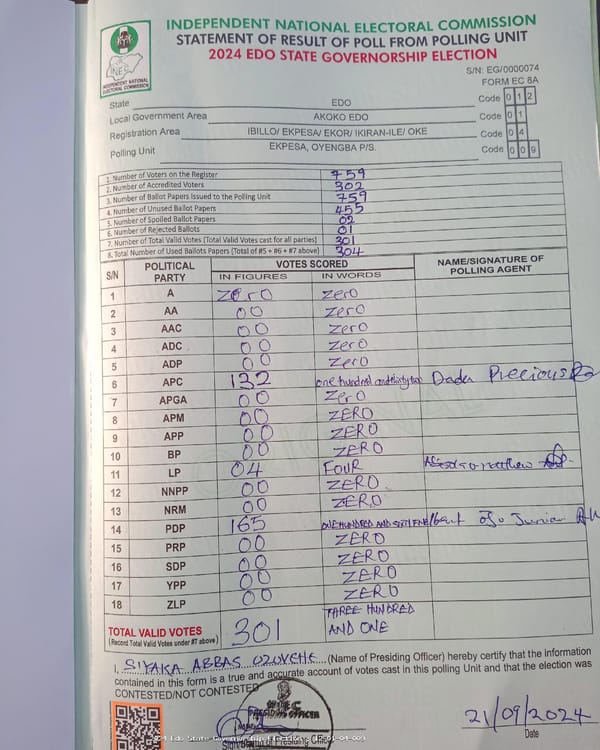 INDEPENDENT NATIONAL ELECTORAL COMMISSION
STATEMENT OF RESULT OF POLL FROM POLLING UNIT
2024 EDO STATE GOVERNORSHIP ELECTION
INEC
INDEPENDENT NATIONAL ELECTORAL COMMISSION
S/N: EG/0000074
FORM EC 8A
State EDO Code 0 1 2
Local Government Area AKOKO EDO Code 0 1
Registration Area IBILLO/ EKPESA/ EKOR/ IKIRAN-ILE/ OKE Code 0 4
Polling Unit EKPESA, OYENGBA P/S. Code 0 0 9
1. Number of Voters on the Register 759
2. Number of Accredited Voters 302
3. Number of Ballot Papers Issued to the Polling Unit 759
4. Number of Unused Ballot Papers 455
5. Number of Spoiled Ballot Papers 02
6. Number of Rejected Ballots 01
7. Number of Total Valid Votes (Total Valid Votes cast for all parties) 301
8. Total Number of Used Ballots Papers (Total of #5 + #6 + #7 above) 304
S/N POLITICAL PARTY VOTES SCORED NAME/SIGNATURE OF POLLING AGENT
IN FIGURES IN WORDS
1 A zero zero
2 AA 00 zero
3 AAC 00 zero
4 ADC 00 zero
5 ADP 00 zero
6 APC 132 one hundred and thirty two Dada Precious
7 APGA 00 zero
8 APM 00 ZERO
9 APP 00 ZERO
10 BP 00 ZERO
11 LP 04 FOUR matthew
12 NNPP 00 ZERO
13 NRM 00 ZERO
14 PDP 165 ONE HUNDRED AND SIXTY FIVE Ojo Junior
15 PRP 00 ZERO
16 SDP 00 ZERO
17 YPP 00 ZERO
18 ZLP 00 ZERO
TOTAL VALID VOTES 301 THREE HUNDRED AND ONE
(Record Total Valid Votes under #7 above)
I, SIYAKA ABBAS OZOVEHE (Name of Presiding Officer) hereby certify that the information
contained in this form is a true and accurate account of votes cast in this polling Unit and that the election was
CONTESTED/NOT CONTESTED
INEC
PRESIDING OFFICER
21/09/2024
Date